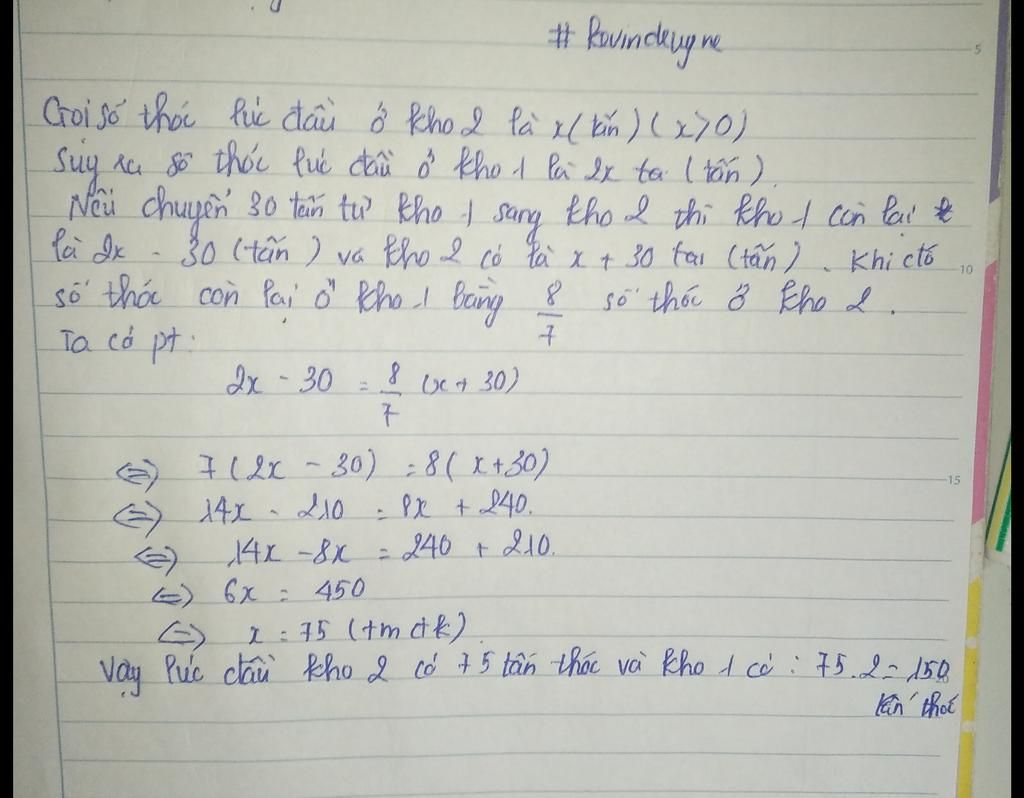 # Rovindeugne
Gọi số thóc lúc đầu ở kho 2 là x (tấn) (x>0)
Suy ra số thóc lúc đầu ở kho 1 là 2x ta (tấn).
Nếu chuyển 30 tấn từ kho 1 sang kho 2 thì kho 1 còn lại
là 2x - 30 (tấn) và kho 2 có là x + 30 tai (tấn). Khi đó
số thóc còn lại ở kho 1 bằng 8/7 số thóc ở kho 2.
Ta có pt:
2x - 30 = 8/7 (x + 30)
<=> 7 (2x - 30) = 8 (x+30)
<=> 14x - 210 = 8x + 240.
<=> 14x - 8x = 240 + 210.
<=> 6x = 450
<=> x = 75 (tm đk)
Vậy lúc đầu kho 2 có 75 tấn thóc và kho 1 có : 75.2 = 150
tấn thóc
5
10
15